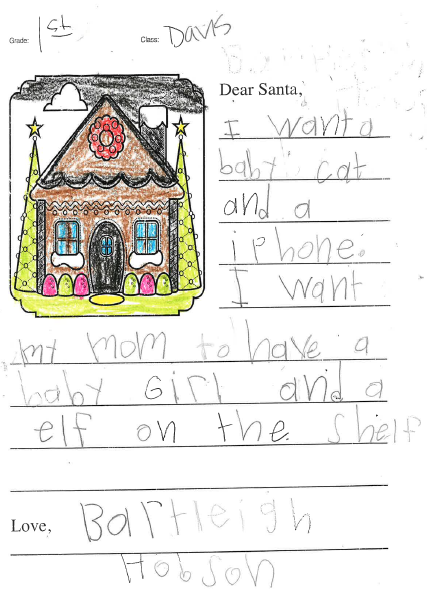 Grade: 1st Class: Davis
Dear Santa,
I want a
baby cat
and a
iphone.
I want
my mom to have a
baby girl and a
elf on the shelf
Love, Bartleigh
Hobson